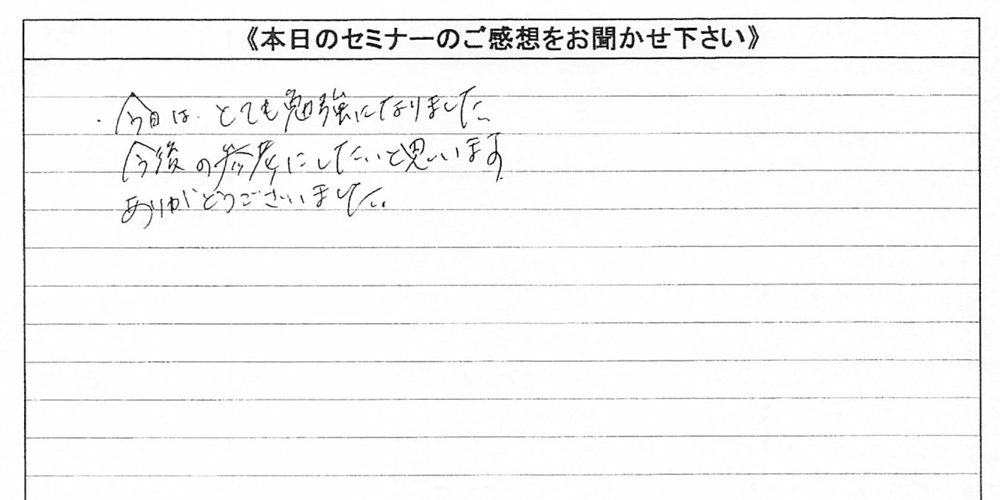 《本日のセミナーのご感想をお聞かせ下さい》
・今日は、とても勉強になりました。
今後の参考にしたいと思います。
ありがとうございました。